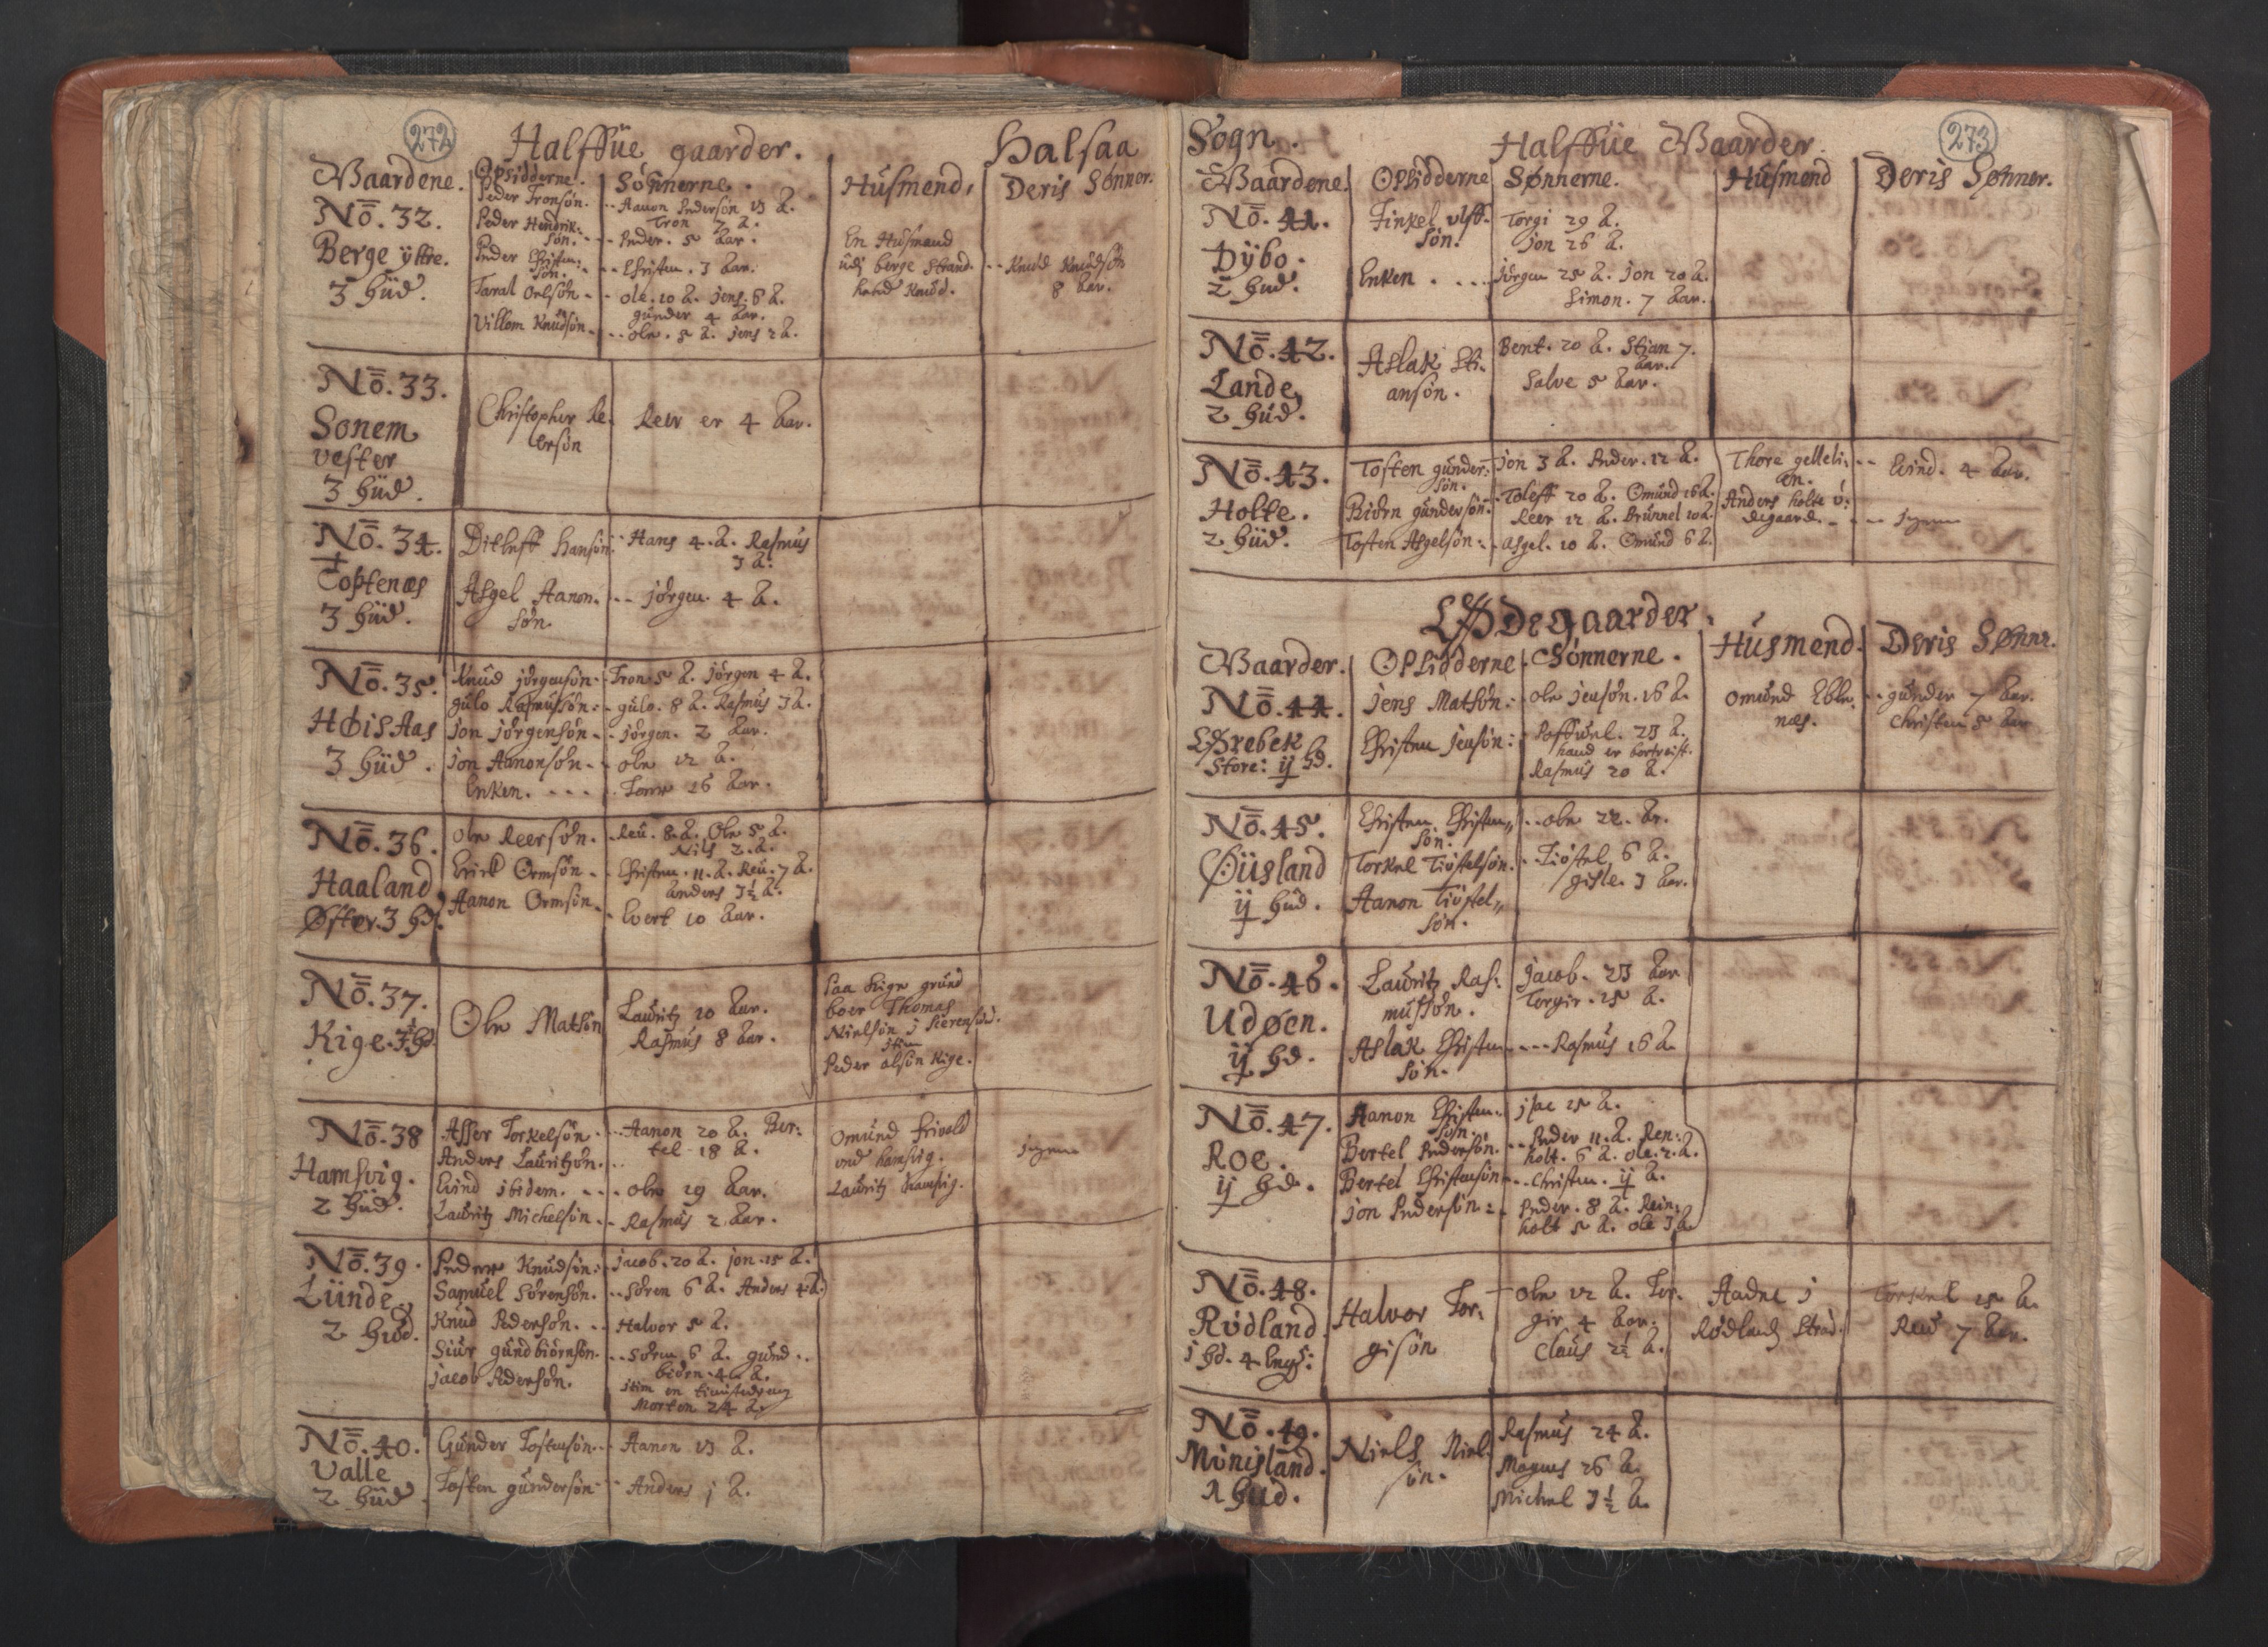 272
Halffüe gaarder.
Halsaa
Gaardene.
Opsidderne.
Sønnerne.
Husmend,
Deris Sønner.
No. 32.
Berge ÿttre.
3 hüd.
Peder Tronsøn.
Peder Hendrik-
søn.
Peder Christen:
søn.
Taral Oelsøn
Villom Knudsøn
Aanon Pedersøn 13 A.
Tron 7 A.
Peder. 5 Aar.
Christen. 3 Aar.
ole. 10 A. jens. 6 A.
gunder 4 Aar.
ole. 5 A. jens 2 A.
En Husmand
udj berge strand
hed Knud.
Knud Knudsøn
8 Aar.
No. 33.
Sonem
vester
3 hüd.
Christopher Re-
ersøn
Reer er 4 Aar.
No. 34.
Toftenæs
3 hüd.
Ditleff Hansøn
Asgel Aanon-
søn
Hans 4. A. Rasmus
3 A.
jørgen. 4 A.
No. 35.
Høis Aas
3 hüd.
Knud jørgensøn
gulo Rasmussøn:
jon jørgensøn
jon Aanonsøn
Enken.
Tron 5 A. jørgen 4 A.
gulo. 8 A. Rasmus 3 A.
jørgen. 2 Aar.
ole 12 A.
Tore 16 Aar.
No. 36.
Haaland
Øster. 3 hd.
Ole Reersøn.
Erick Ormsøn
Aanon Ormsøn
Reu. 8. A. Ole 5 A.
Nils 2. A.
Christen. 11. A. Reu. 7 A.
anders 3½ A.
Evert 10 Aar.
No. 37.
Kige. 3½ hd.
Ole Matsøn
Lauritz 10 Aar.
Rasmus 8 Aar.
paa kige grund
boer Thomas
Nielsøn
item
Peder olsøn Kige.
No. 38
Hamsvig.
2 hüd.
Asser Torkelsøn
Anders Lauritzøn.
Evind ibidem.
Lauritz Michelsøn
Aanon 20 A. Ber-
tel 18 A.
ole 19 Aar.
Rasmus 2 Aar.
Omund
ved hamsvig.
Lauritz hamsvig.
ingen
No. 39.
Lünde
2 hüd.
Peder Knudsøn:
Samuel Sørensøn.
Knud Pedersøn.
Siur gundbiørnsøn.
jacob Pedersøn.
jacob. 20 A. jon. 15 A.
Søren 6 A. Anders 4 A.
Halvor 5 A.
Søren 6 A. gund-
biørn. 4. A.
item en tienistedreng
Morten 24 A.
No. 40.
Valle
2 hüd.
Gunder Tostensøn
Tosten gundersøn
Aanon 13 A.
Anders j A.
273
Sogn.
Halffüe Gaarder.
Gaardene.
Opsidderne
Sønnerne.
Husmend
Deris Sønner.
No. 41.
Dÿbo.
2 hud.
Finkel ulff-
søn.
Enken.
Torgi 29 A.
jon 26 A.
jørgen 25 A. jon 20 A.
Simon. 7 Aar.
No. 42.
Lande,
2 hüd.
Aslak Sti-
ansøn.
Bent. 20 A. Stian 7.
Aar.
Salve 5 Aar.
No. 43.
Holte.
2 hüd.
Tosten gunder-
søn.
Biørn gundersøn.
Tosten Asgelsøn
jon 3 A. Peder. 12 A.
Toleff 20 A. Omund 16 A.
Reer 12 A. Brunnel 10 A.
Asgel. 10 A. Omund 6 A.
Thore gelleli-
en.
Anders holte ø-
degaard.
Evind. 4 Aar.
ingen
Ødegaarder.
Gaarder.
Opsidderne.
Sønnerne.
Husmend.
Deris Sønne.
No. 44.
Ørebek
Store: ij hd.
jens Matsøn:
Christen jensøn:
ole jensøn. 16 A.
Poffuel. 23 A.
hand er bortreist.
Rasmus 20 A.
Omund Eble-
næs.
gunder 7 Aar.
Christen 5 Aar
No. 45.
Øüsland
ij hüd.
Christen Christen-
søn.
Torkel Tiøstelsøn.
Aanon Tiøstel-
søn.
ole 22. Ar.
Tiøstel 6 A.
gisle. 3 Aar.
No. 46.
Udøen.
ij hd.
Lauritz Ras-
mussøn.
Aslak Christen-
søn.
jacob. 23 Aar
Torgir. 15 A.
Rasmus 16 A.
No. 47.
Roe.
ij hd.
Aanon Christen-
søn.
Bertel Pedersøn.
Bertel Christensøn
jon Pedersøn
jsac 15 A.
Peder 11. A. Ren-
holt. 6 A. ole. 2. A.
Christen. ij A.
Peder. 8 A. Rein-
holt 5 A. ole 3 A.
No. 48.
Rødland
j hd. 4 eng:
Halvor Tor-
gisøn
Ole 12 A. Tor-
gir 4 Aar.
Claus 2½ A.
Aadne i
Rødlands Strad.
Torkel 15 A.
Reu 7 Aar.
No. 49.
Monisland.
1 hud.
Niels Niel-
søn.
Rasmus 24 A.
Magnes 26 A.
Michel 3½ A.